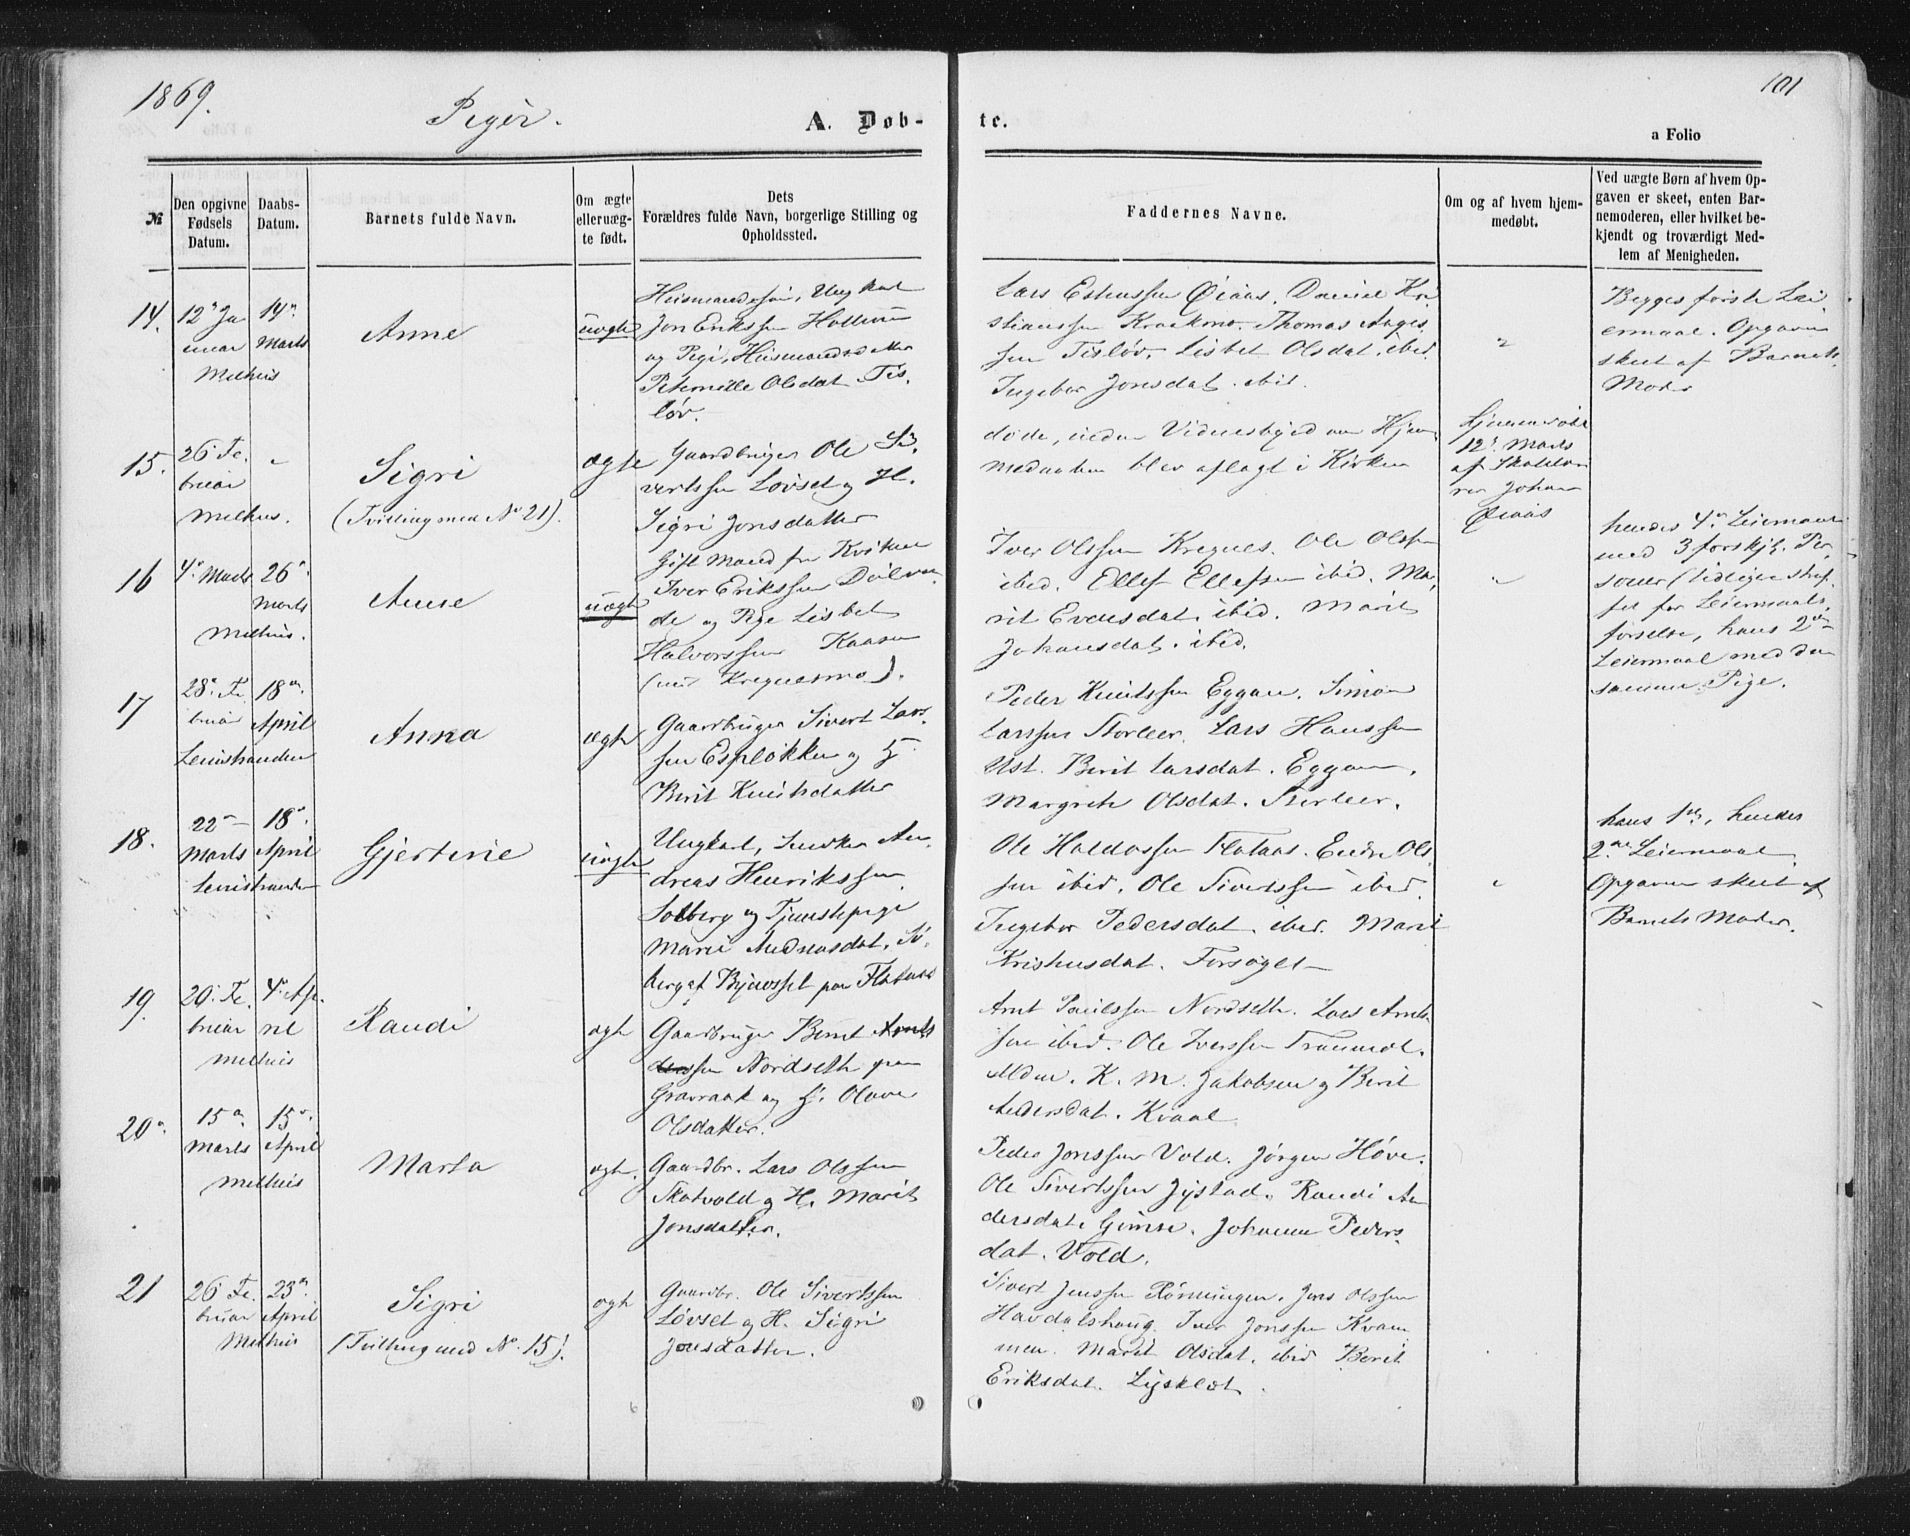 1869.
Piger.
A. Døb-
te.
101
a Folio
№
Den opgivne Fødsels Datum.
Daabs-Datum.
Barnets fulde Navn.
Om ægte elleruæg-te født.
Dets Forældres fulde Navn, borgerlige Stilling og Opholdssted.
Faddernes Navne.
Om og af hvem hjem-medøbt.
Ved uægte Børn af hvem Op-gaven er skeet, enten Bar-nemoderen, eller hvilket be-kjendt og troværdigt Med-lem af Menigheden.
14.
12 Ja
nuar
Melhus
14
Marts
Anne
uægte
Ungkarl
Jon Erikssen
og Pige, Huusmandsdatter
Olsdat. Tis-
løv.
Lars Estenssen Øiaas. Daniel Kri
stianssen Kraakmo. Thomas Aages
sen Tisløv. Lisbet Olsdat. ibid.
Ingebor Jonsdat. ibid.
"
Begges første Lei
ermaal. Opgaven
skeet af Barnets
Moder
15.
26 Fe
bruar
Melhus.
"
Sigri
(Tvilling med No 21).
ægte
Gaardbruger Ole Si
vertssen Løvset og H.
Sigri Jonsdatter
døde, inden Vidnesbyrd om Hjem
medaaben blev aflagt i Kirken
Hjemmedøbt
12 Marts
af Skolelæ
rer Johan
Øiaas
16
4 Marts
Melhus.
26
Marts
Anne
uægte
Gift Mand fra
Iver Erikssen
de og Pige Lisbet
Halvorssen Kaasen
(nu Kregnesmo).
Iver Olssen Kregnes. Ole Olssen
ibid. Ellef Ellefsen ibid. Ma-
rit Evensdat. ibid. Marit
Johansdat. ibid.
"
hendes 4 Leiermaal
med 3 forskjl. Per-
soner (tidligere straf-
fet for Leiermaals
forseelse, hans 2
Leiermaal med den
samme Pige.
17
28 Fe
bruar
Leinstranden
18
April
Anna
ægte
Gaardbruger Sivert Lars
sen Espløkken og H.
Berit Knutsdatter
Peder Knutssen Eggan. Simon
Larssen Storleer. Lars Hanssen
Ust. Berit Larsdat. Eggan.
Margrete Olsdat. Storleer.
18.
22
Marts
Leinstranden
18
April
Gjertine
uægte
Ungkarl, Svensken An
dreas Henrikssen
Solberg og Tjenestepige
Marie Andreasdat. Sø
bergaf Bynesset paa Flataas
Ole Haldossen Flataas. Endre Ols
sen ibid. Ole Sivertssen ibid.
Ingebor Pedersdat. ibid. Marit
Kristensdat. Forsøget
"
hans 1, hendes
2 Leiermaal.
Opgaven skeet af
Barnets Moder.
19.
20 Fe.
bruar
Melhus
4 Ap.
ril
Randi
ægte
Gaardbruger Bernt Arnts
sen Nordseth paa
Gravraak og H. Olava
Olsdatter.
Arnt Paulssen Nordseth. Lars Arnts
sen ibid. Ole Iverssen
K. M. Jakobsen og Berit
Andersdat. Kvaal
20.
15
Marts
Melhus
15
April
Marta
ægte.
Gaardbr. Lars Olssen
Skatvold og H. Marit
Jonsdatter.
Peder Jonssen Vold. Jørgen Høve.
Ole Sivertssen Jystad. Randi An
dersdat. Gimse. Johanna Peders
dat. Vold.
21
26 Fe.
bruar
Melhus
23
April
Sigri
(Tvilling med No. 15).
ægte
Gaardbr. Ole Sivertssen
Løvset og H. Sigri
Jonsdatter.
Sivert Jenssen Rønningen. Jens Olssen
Havdalshaug. Iver Jonssen Kvam
men. Marit Olsdat. ibid. Berit
Eriksdat. Lysklet.